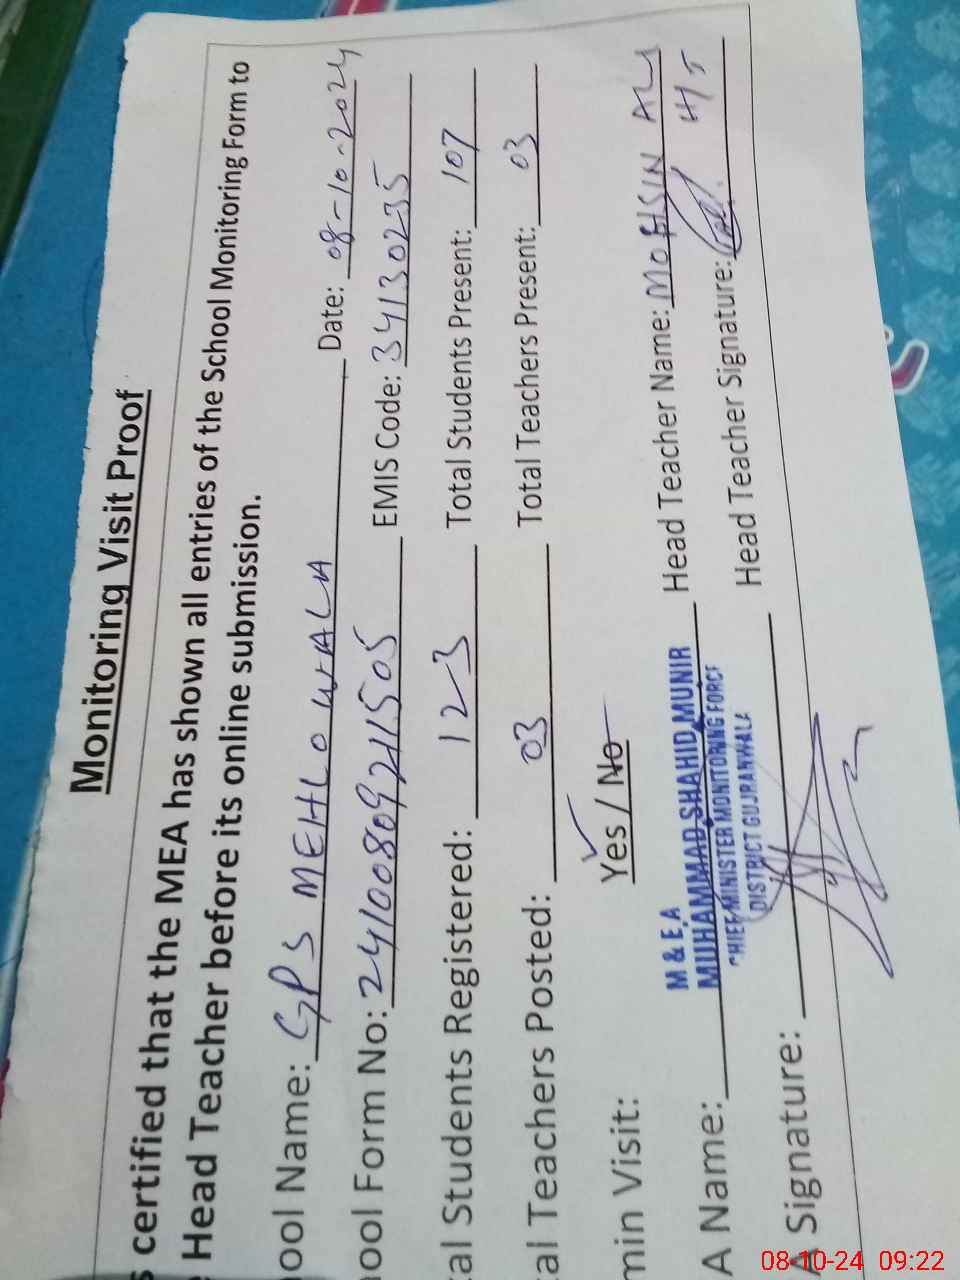 Monitoring Visit Proof
s certified that the MEA has shown all entries of the School Monitoring Form to
Head Teacher before its online submission.
ool Name: GPS MEHLO WALA Date: 08-10-2024
ool Form No: 2410080921505 EMIS Code: 34130235
al Students Registered: 123 Total Students Present: 107
al Teachers Posted: 03 Total Teachers Present: 03
min Visit: Yes / No
M & E.A
A Name: MUHAMMAD SHAHID MUNIR Head Teacher Name: MOHSIN ALI
CHIEF MINISTER MONITORING FORCE
DISTRICT GUJRANWALA
A Signature: Head Teacher Signature: H/T
08-10-24 09:22